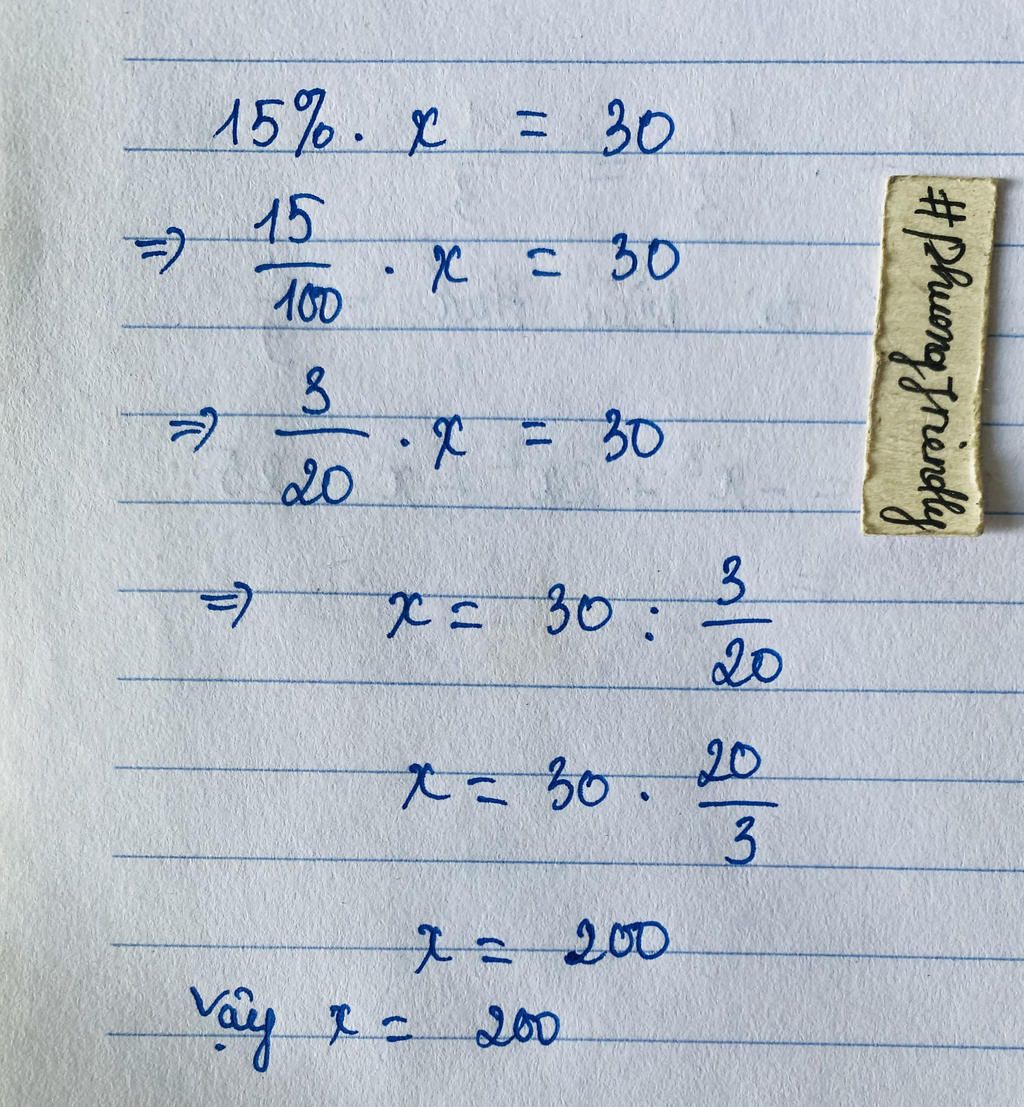 15% . x = 30
⇒ 15/100 . x = 30
⇒ 3/20 . x = 30
⇒ x = 30 : 3/20
x = 30 . 20/3
x = 200
Vậy x = 200
#phuongfriendly